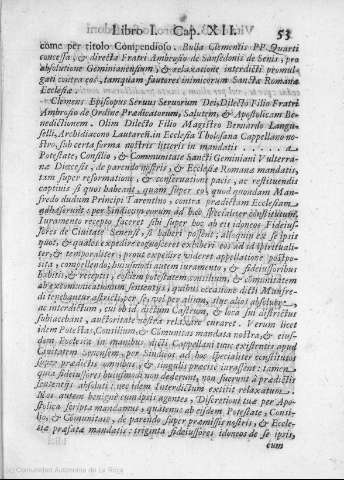 Libro I. Cap. XII. 53
come per titolo Compendioso. Bulla Clementis PP. Quarti
concessa, & directa Fratri Ambrosio de Sansedonis de Senis, pro
absolutione Geminianensium, & relaxatione interdicti promul-
gati contra eos, tamquam fautores inimicorum Sanctæ Romanæ
Ecclesiæ
Clemens Episcopus Seruus Seruorum Dei, Dilecto Filio Fratri
Ambrosio de Ordine Prædicatorum, Salutem, & Apostolicam Be-
nedictionem. Olim Dilecto Filio Magistro Bernardo Langui-
selli, Archidiacono Lautaren. in Ecclesia Tholosana Cappellano no-
stro, sub certa forma nostris litteris in mandatis
Potestate, Consilio, & Communitate Sancti Geminiani Vulterra-
næ Diœcesis, de parendo nostris, & Ecclesiæ Romanæ mandatis,
tam super reformatione, & conseruatione pacis, ac restituendis
captiuis si quos habent, quam super eo, quod quondam Man-
fredo dudum Principi Tarentino, contra prædictam Ecclesiam
adhæserunt, per Sindicum eorum ad hoc specialiter constitutum
Iuramento recepto faceret sibi super hoc ab eis idoneos Fideius-
sores de Ciuitate Senensi, si haberi posset; alioquin ex se ipsis
quot, & quales expedire cognosceret exhiberi eos ad id spirituali-
ter, & temporaliter, prout expedire videret appellatione postpo-
sita, compellendo; huiusmodi autem iuramento, & fideiussoribus
habitis, & receptis, eosdem potestatem, consilium, & Comunitatem
ab excomunicationum sententijs, quibus occasione dicti Munfre-
di tenebantur astricti, per se, vel per alium, siue alios absolute,
ac interdictum, cui ob id dictum Castrum, & loca sui districtus
subiacebant, auctoritate nostra relaxare curaret. Verum licet
idem Potestas, Consilium, & Comunitas mandata nostra, & eius-
dem Ecclesiæ in manibus dicti Cappellani tunc existentis apud
Ciuitatem Senensem, per Sindicos ad hoc specialiter constitutos
super prædictis omnibus, & singulis præcise iurassent: tamen
quia fideiussores huiusmodi non dederunt, non fuerunt à prædictis
sententijs absoluti: nec idem Interdictum extitit relaxatum.
Nos autem benignè cum ipsis agentes, Discretioni tuæ per Apo-
stolica scripta mandamus, quatenus ab eisdem Potestate, Consi-
lio, & Comunitate, de parendo super præmissis nostris, & Eccle-
siæ præfatæ mandatis: triginta fideiussores idoneos de se ipsis,
cum
(c) Comunidad Autónoma de La Rioja